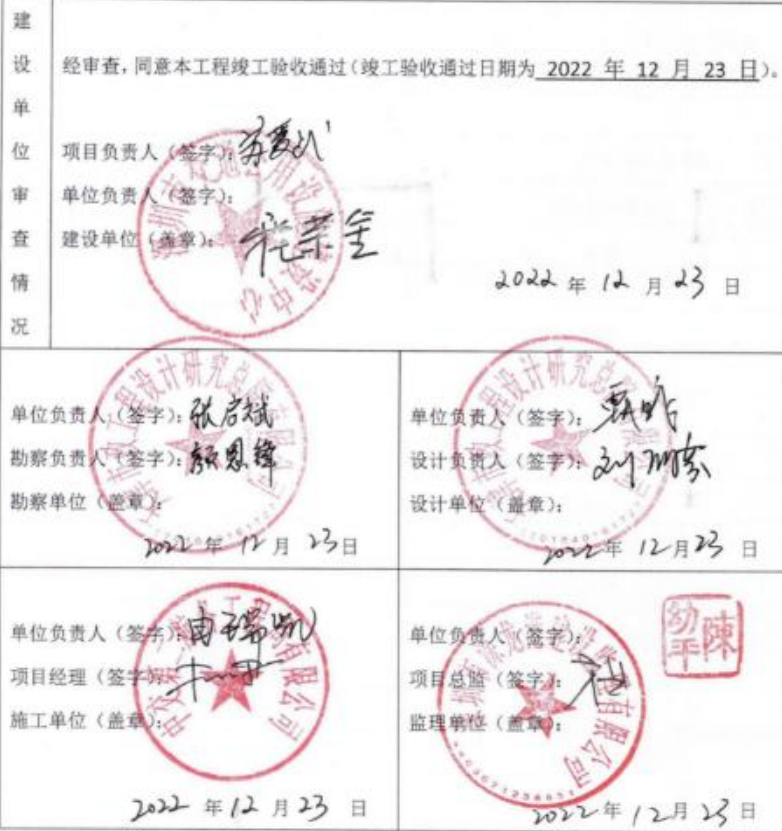 建设单位审查情况
经审查，同意本工程竣工验收通过（竣工验收通过日期为 2022 年 12 月 23 日）。
项目负责人（签字）：
单位负责人（签字）：
建设单位（盖章）：
2022 年 12 月 23 日
单位负责人（签字）：张启斌
勘察负责人（签字）：颜恩锋
勘察单位（盖章）：
2022 年 12 月 23 日
单位负责人（签字）：
设计负责人（签字）：
设计单位（盖章）：
2022 年 12 月 23 日
单位负责人（签字）：
项目经理（签字）
施工单位（盖章）：
2022 年 12 月 23 日
单位负责人（签字）：
陈幼平
项目总监（签字）：
监理单位（盖章）：
2022 年 12 月 23 日